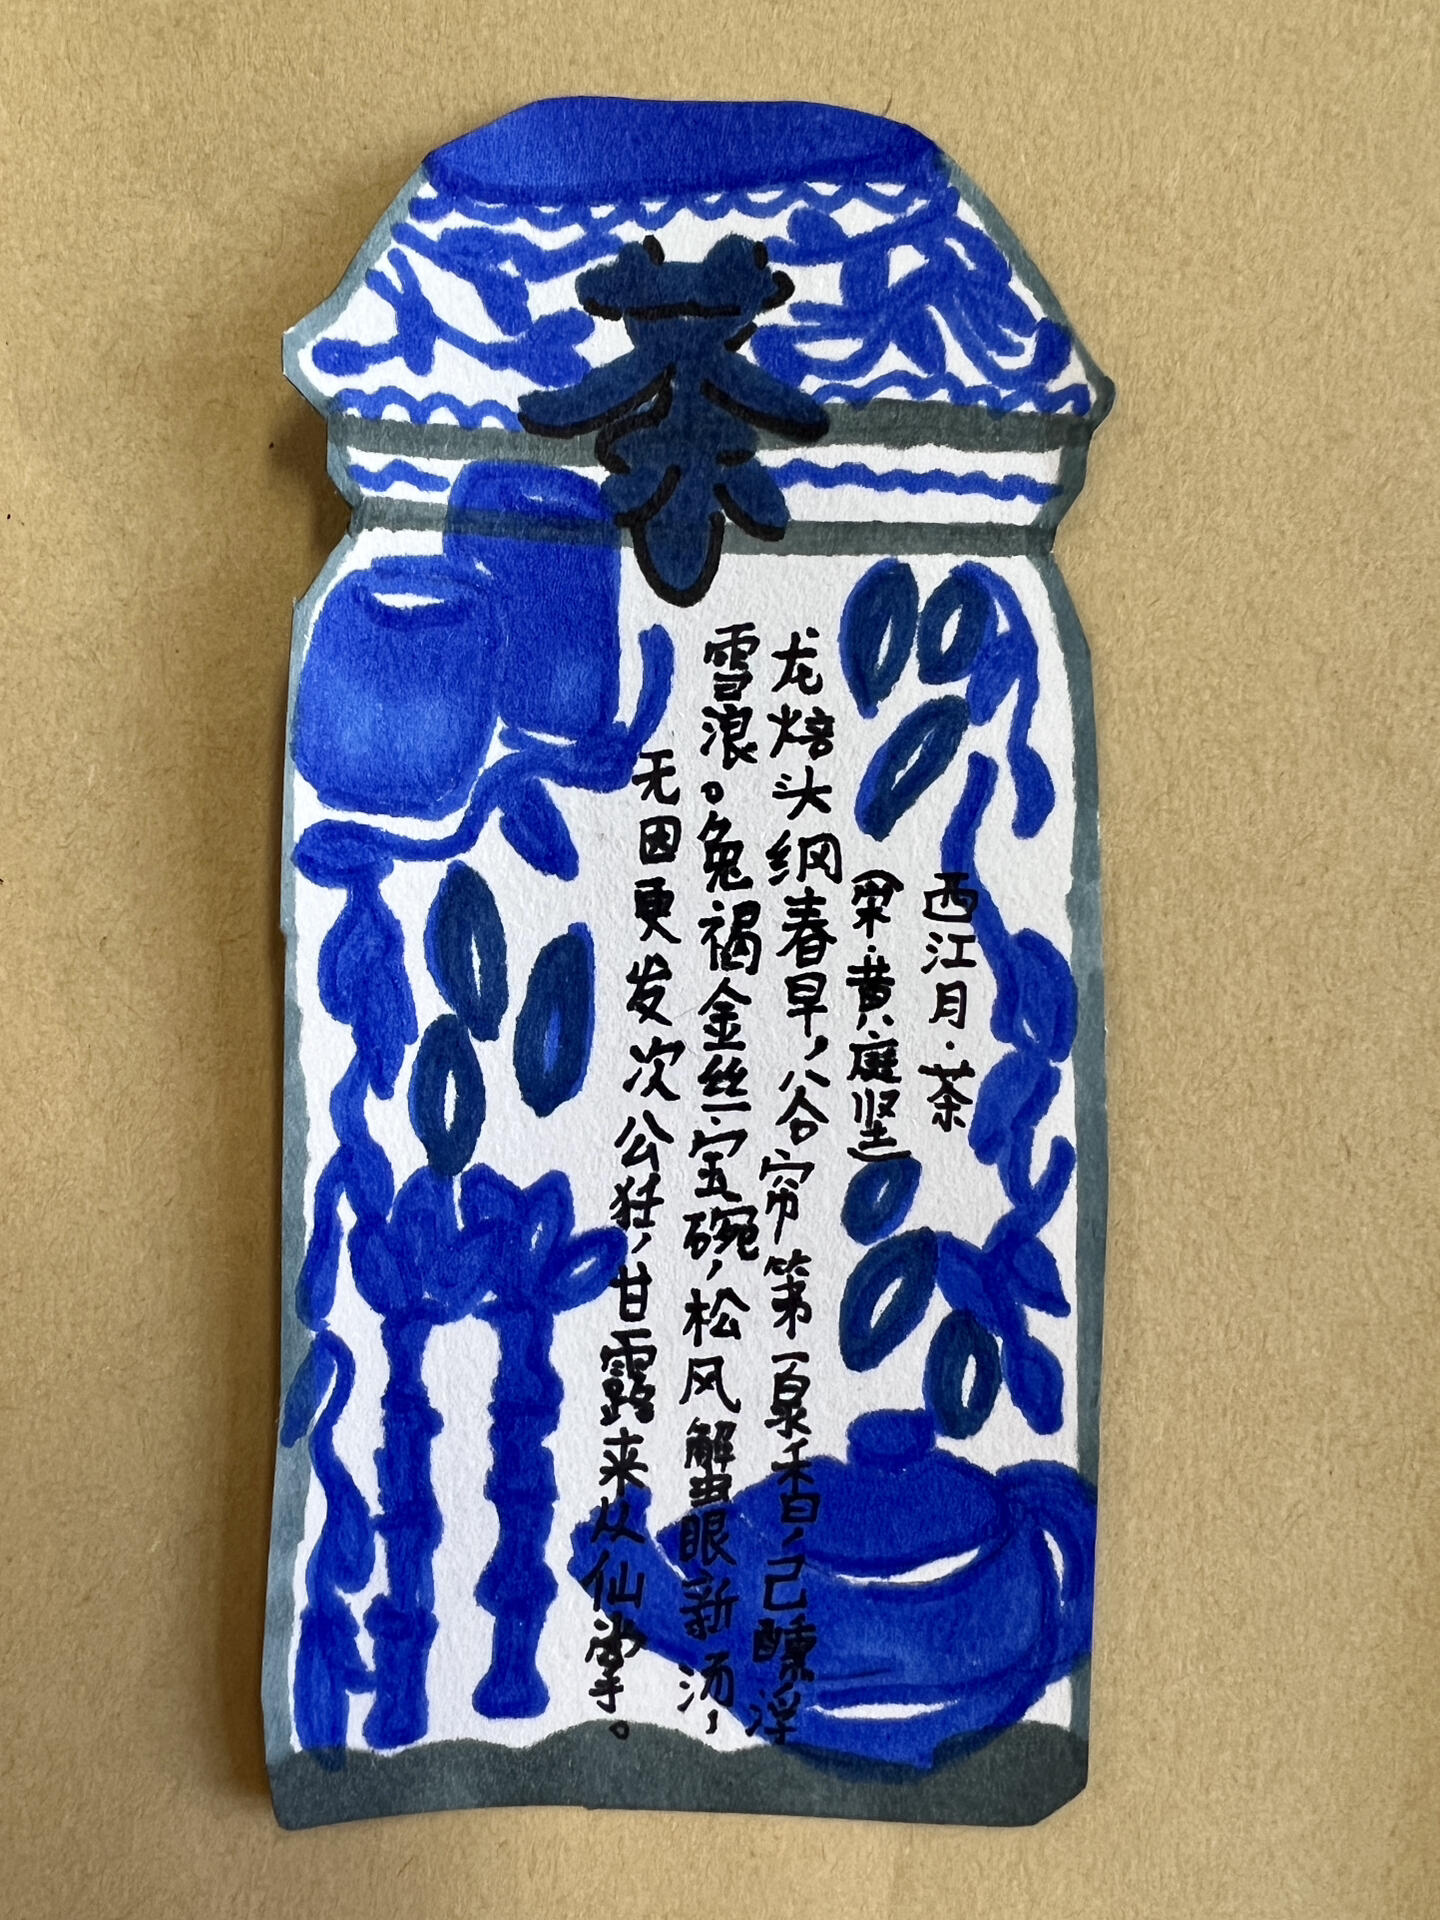 茶
西江月·茶
(宋·黄庭坚)
龙焙头纲春早，谷帘第一泉香，己醺浮
雪浪。兔褐金丝宝碗，松风解蟹眼新汤，
无因更发次公狂，甘露来从仙掌。